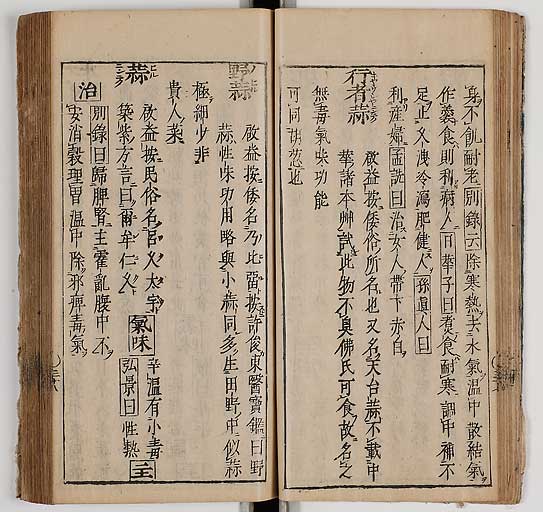 身不飢耐老別錄云除寒熱去水氣溫中散結氣
作羹食則利病人日華子曰煮食耐寒調中補不
足正又洩冷瀉肥健人孫眞人曰
利産婦孟詵曰治女人帶下赤白
行者蒜
啟益按倭俗所名也又名天台蒜不載中
華諸本艸試此物不臭佛氏可食故名之
無毒氣味功能
可同胡葱也
野蒜
啟益按倭名乃此畱按許俊東醫寶鑑曰野
蒜性味功用略與小蒜同多生田野中似蒜
極細少非
貴人藥
蒜
啟益按民俗名官又太宰
築紫方言曰爾牟仁又
氣味
辛溫有小毒
弘景曰性熱
主
治
別錄曰歸脾腎主霍亂腹中不
安消穀理胃溫中除邪痺毒氣